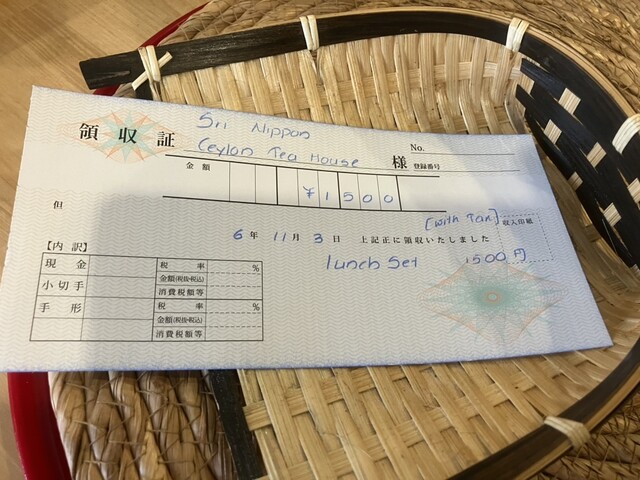 Sri Nippon
領収証 Ceylon Tea House 様
No.
登録番号
金額 ¥1500
但
[with Tax] 収入印紙
6年 11月 3日 上記正に領収いたしました
lunch Set 1500円
【内訳】
現金 税率 %
金額(税抜・税込)
小切手 消費税額等
手形 税率 %
金額(税抜・税込)
消費税額等